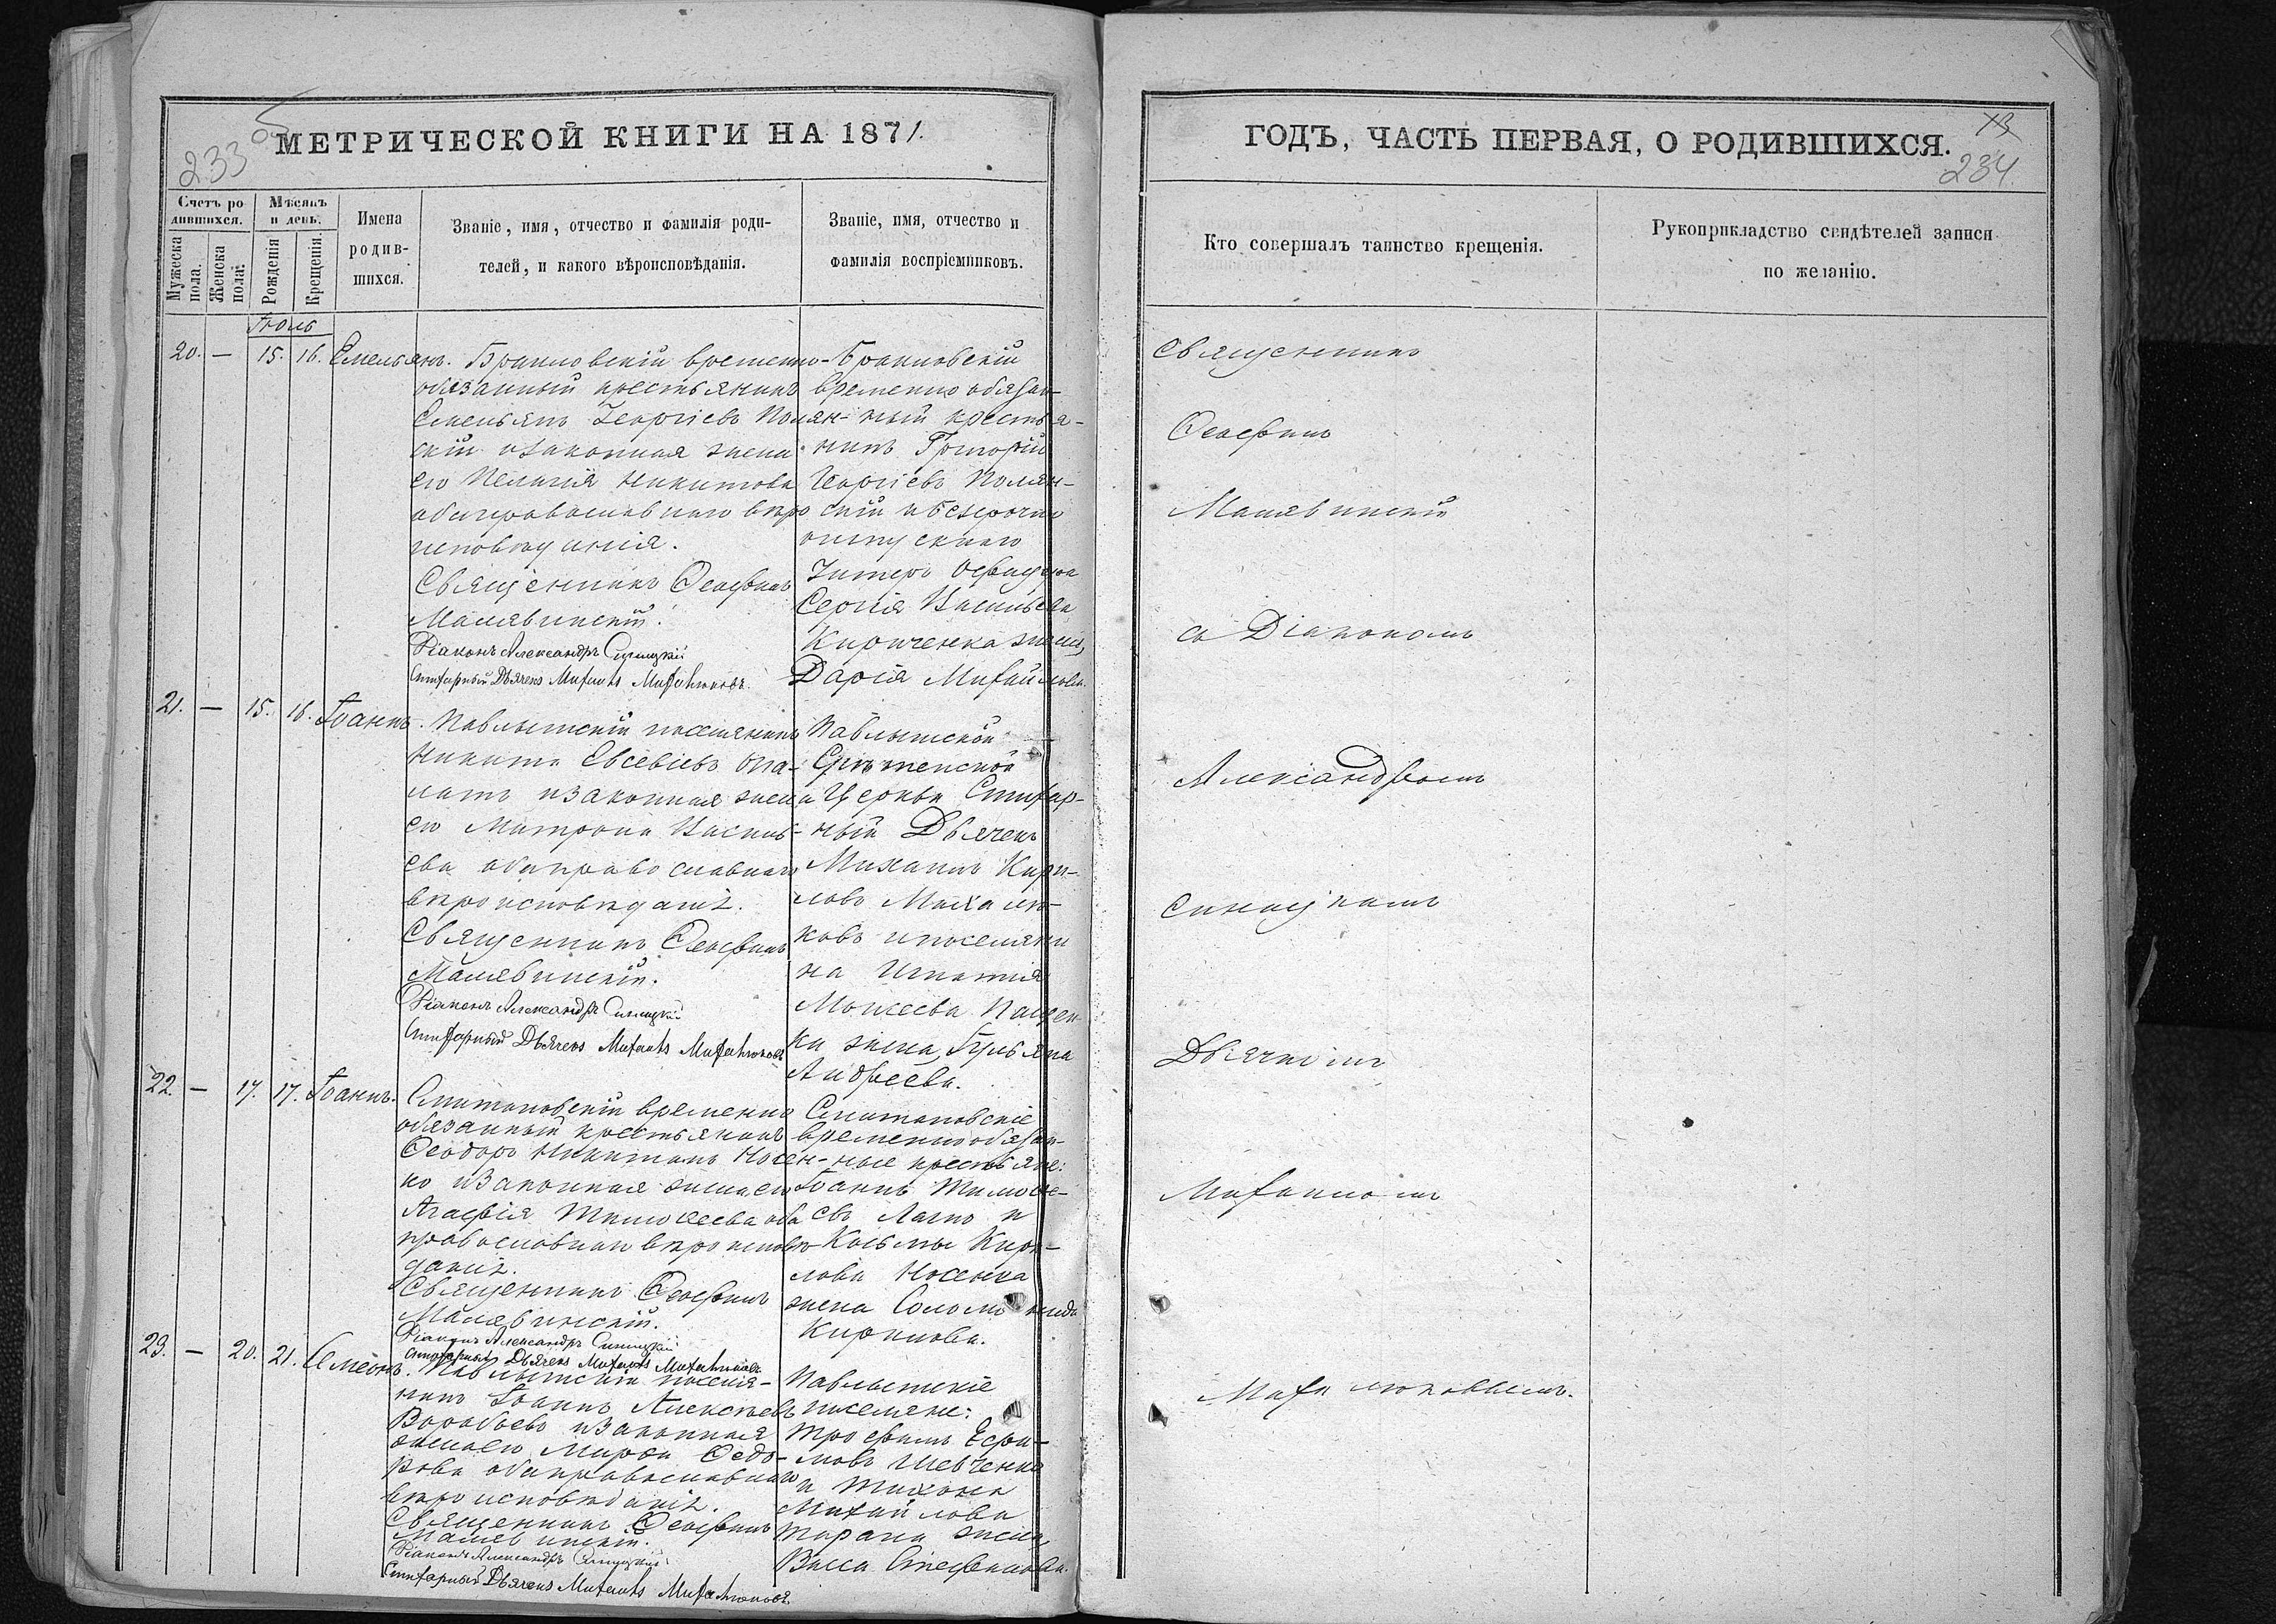 233 об
МЕТРИЧЕСКОЙ КНИГИ НА 1871.
Счетъ родившихся.
Мѣсяцъ и день.
Мужеска пола.
Женска пола.
Рожденія
Крещенія.
Имена родившихся.
Званіе, имя, отчество и фамилія родителей, и какого вѣроисповѣданія.
Званіе, имя, отчество и фамилія воспріемниковъ.
Іюль
20. — 15. 16. Емельянъ.
Браиловскій временно
обязанный крестьянинъ
Емельянъ Георгіевъ Полян-
скій изаконная жена
его Пелагія Никитова
оба православнаго вѣро
исповѣданія.
Священникъ Ѳеофилъ
Малявинскій.
Діаконъ Александръ Синицкій
Стихарный Дьячекъ Михаилъ Михалюковъ.
Браиловскій
временно обязан-
ный крестья-
нинъ Григорій
Георгіевъ Полян-
скій и безсрочно
отпускнаго
Унтеръ Офицера
Сергія Васильева
Кириченка жена,
Дарія Михайлова.
21. — 15. 16. Іоаннъ.
Павлышскій поселянинъ
Никита Евсевіевъ
изаконная жена
его Матрона Василь-
ева оба православнаго
вѣроисповѣданія.
Священникъ Ѳеофилъ
Малявинскій.
Діаконъ Александръ Синицкій
Стихарный Дьячекъ Михаилъ Михалюковъ
Павлышской
Срѣтенской
Церкви Стихар-
ный Дьячекъ
Михаилъ Кири-
ловъ Михалю-
ковъ и поселяни
на Игнатія
Моисеева Пащен
ка жена, Іульяна
Андреева.
22. — 17. 17. Іоаннъ.
временно
обязанный крестьянинъ
Ѳеодоръ Никитинъ Носен-
ко изаконная жена его
Агафія Тимоѳеева оба
православнаго вѣроисповѣ
данія.
Священникъ Ѳеофилъ
Малявинскій.
Діаконъ Александръ Синицкій
Стихарный Дьячекъ Михаилъ Михалюковъ
временно обязан-
ные крестьяне:
Іоаннъ Тимоѳе-
евъ и
Косьмы Кири-
лова Носенка
жена Соломонида
Кирилова.
23. — 20. 21. Сѵмеонъ.
Павлышскій поселя-
нинъ Іоаннъ Алексѣевъ
Воробьевъ изаконная
жена его Марѳа Ѳедо-
рова оба православнаго
вѣроисповѣданія.
Священникъ Ѳеофилъ
Малявинскій.
Діаконъ Александръ Синицкій
Стихарный Дьячекъ Михаилъ Михалюковъ
Павлышскіе
поселяне:
Трофимъ Ефи-
мовъ Шевченко
и Тихона
Михайлова
Тарана жена,
Васса Стефанова.
ГОДЪ, ЧАСТЬ ПЕРВАЯ, О РОДИВШИХСЯ.
13
234
Кто совершалъ таинство крещенія.
Рукоприкладство свидѣтелей записи по желанію.
Священникъ
Ѳеофилъ
Малявинскій
съ Діакономъ
Александромъ
Синицкимъ
Дьячкомъ
Михаиломъ
Михалюковымъ.